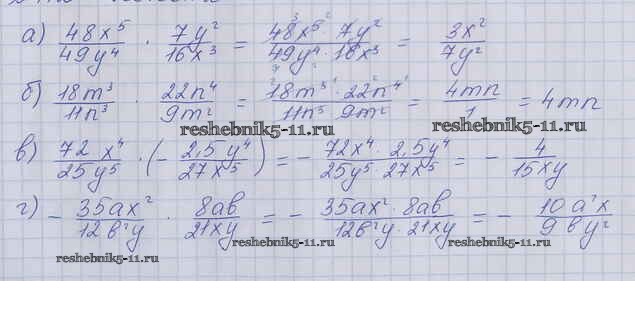 а) 48x⁵/49y⁴ · 7y²/16x³ = 48x⁵ · 7y²/49y⁴ · 16x³ = 3x²/7y²
б) 18m³/11n³ · 22n⁴/9m² = 18m³ · 22n⁴/11n³ 9m² = 4mn/1 = 4mn
reshebnik5-11.ru
reshebnik5-11.ru
в) 72x⁴/25y⁵ · (- 2,5y⁴/27x⁵) = - 72x⁴ · 2,5y⁴/25y⁵ · 27x⁵ = - 4/15xy
г) - 35ax²/12в²y · 8aв/21xy = - 35ax² · 8aв/12в²y · 21xy = - 10a²x/9вy²
reshebnik5-11.ru
reshebnik5-11.ru
reshebnik5-11.ru